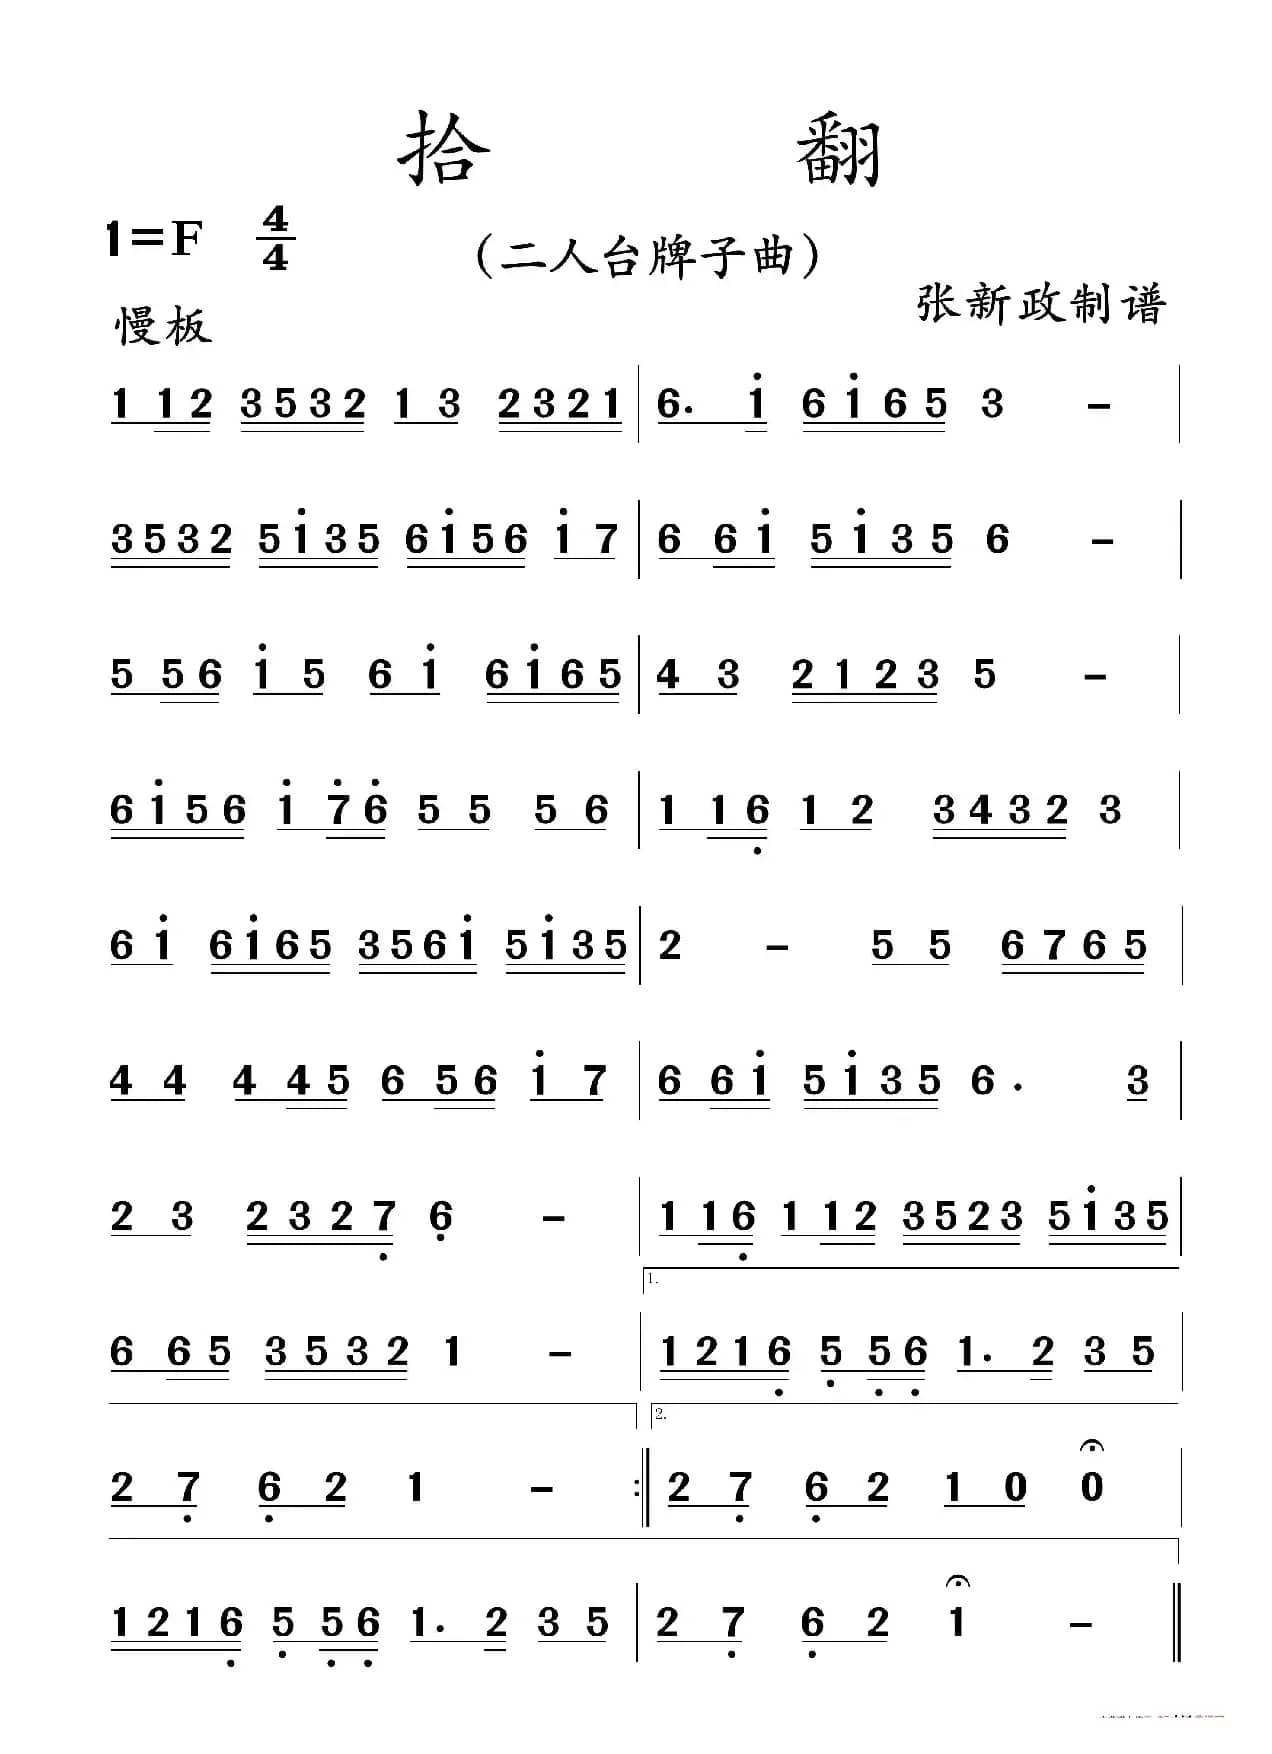 拾 翻
1=F 4/4
(二人台牌子曲)
张新政制谱
慢板
1 12 3532 13 2321 | 6. i̇ 6i̇65 3 – |
3532 5i̇35 6i̇56 i̇7 | 6 6i̇ 5i̇35 6 – |
5 56 i̇5 6i̇ 6i̇65 | 43 2123 5 – |
6i̇56 i̇ 7̇6̇ 55 56 | 1 16̣ 12 3432 3 |
6i̇ 6i̇65 356i̇ 5i̇35 | 2 – 55 6765 |
44 4 45 6 56 i̇7 | 6 6i̇ 5i̇35 6 . 3 |
23 2327̣ 6̣ – | 1 16̣ 1 12 3523 5i̇35 |
1.
6 65 3532 1 – | 1216̣ 5̣ 5̣6̣ 1. 2 35 |
2.
27̣ 6̣2 1 – :| 27̣ 6̣2 10 0 |
1216̣ 5̣ 5̣6̣ 1. 2 35 | 27̣ 6̣2 1 – ||